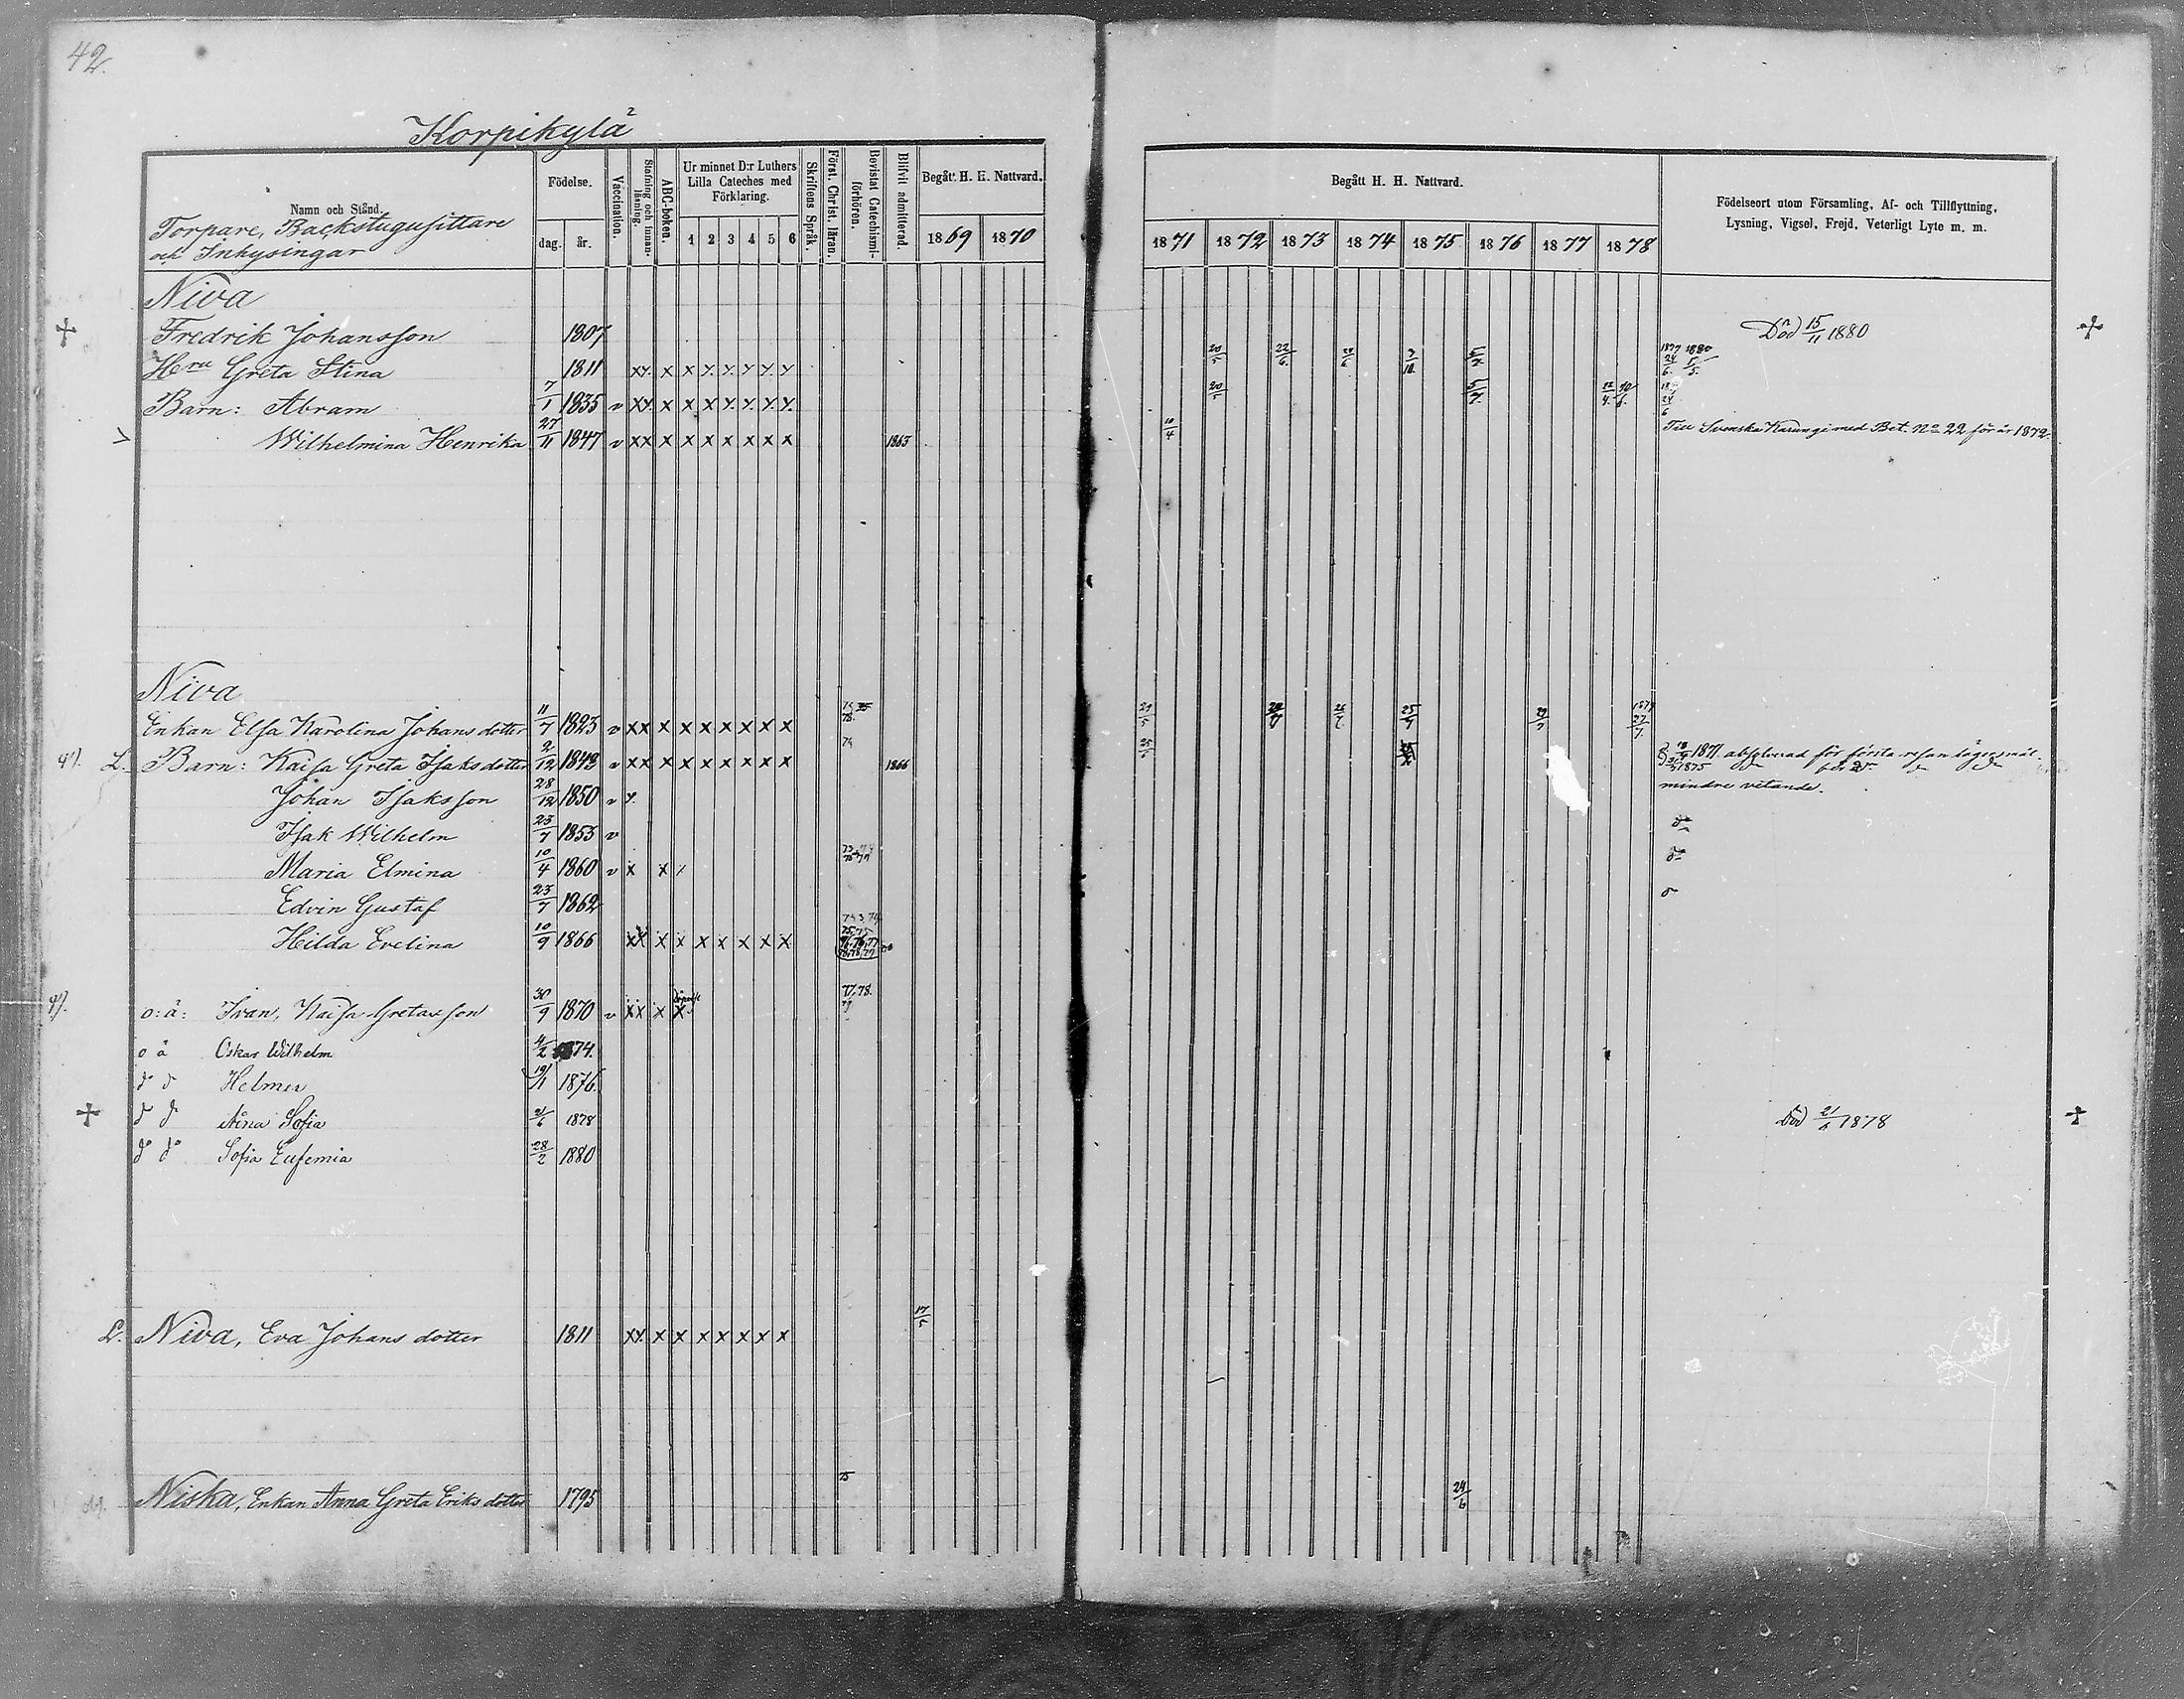 42.
Korpikylä
Namn och Stånd.
Torpare, Backstugusittare
och Inhysingar
Födelse.
dag. år.
Vaccination.
Stafning och innan-läsning.
ABC-boken.
Ur minnet D:r Luthers
Lilla Cateches med
Förklaring.
1 2 3 4 5 6
Skriftens Språk.
Först. Christ. läran.
Bevistat Catechismi-förhören.
Blifvit admitterad.
Begått H. H. Nattvard.
1869 1870
Begått H. H. Nattvard.
1871 1872 1873 1874 1875 1876 1877 1878
Födelseort utom Församling, Af- och Tillflyttning,
Lysning, Vigsel, Frejd, Veterligt Lyte m. m.
Niva
Fredrik Johansson 1807 Död 15/11 1880
Hru Greta Stina 1811 xy. x x y. y. y y. y 20/5 22/6
Barn: Abram 7/1 1835 v xy. x x x y. y. y. y. 20/5 5/7
Wilhelmina Henrika 27/11 1847 v xx x x x x x x x 1865 10/4 Till Svenska Karungi med Bet. No 22 för år 1872.
Niva
Enkan Elsa Karolina Johans dotter 11/7 1823 v xx x x x x x x x 29/5 25/7 29/7 1879 27/7
L. Barn: Kaisa Greta Isaks dotter 2/12 1849 v xx x x x x x x x 74 1866 25/5 1871 absolverad för första resan lägersmål.
1875
Johan Isaksson 28/12 1850 v y. mindre vetande.
Isak Wilhelm 23/7 1853 v do
Maria Elmina 10/4 1860 v x x / do
Edvin Gustaf 23/7 1862
Hilda Evelina 10/9 1866 xx x x x x x x x
o: ä: Ivan, Kaisa Gretasson 30/9 1870 v xx x x 77. 78.
o ä Oskar Wilhelm 4/2 1874.
do Helmer 19/1 1876.
Anna Sofia 21/6 1878 Död 21/6 1878
do do Sofia Eufemia 28/2 1880
L. Niva, Eva Johans dotter 1811 xy. x x x x x x x 17/5
Niska, Enkan Anna Greta Eriks dotter 1795 75 24/6